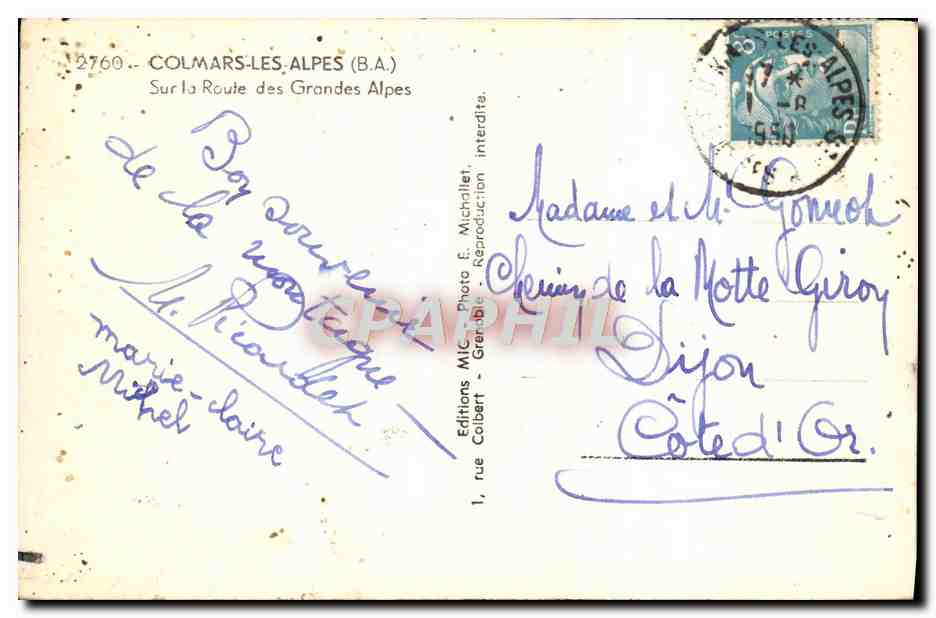 2760 - COLMARS-LES-ALPES (B.A.)
Sur la Route des Grandes Alpes
Bon souvenir
de la montagne
M. Picardet
marie-claire
Michel
Editions MIC - Photo E. Michallet,
1, rue Colbert - Grenoble - Reproduction interdite.
8 POSTES
LES-ALPES
17 * 
1950
Madame et Mr
Chemin de la Motte Giron
Dijon
Côte d'Or.
CPAPHIL